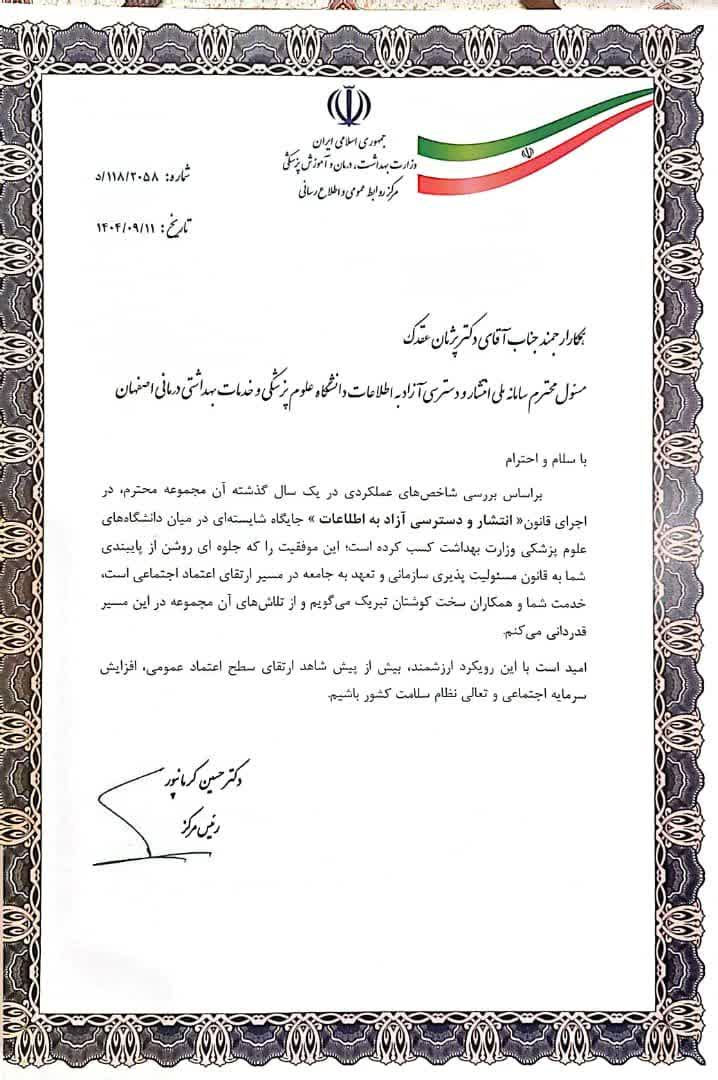 جمهوری اسلامی ایران
وزارت بهداشت، درمان و آموزش پزشکی
مرکز روابط عمومی و اطلاع رسانی
شماره: ۵/۱۱۸/۲۰۵۸
تاریخ: ۱۴۰۴/۰۹/۱۱
همکار ارجمند جناب آقای دکتر پژمان عقدک
مسئول محترم سامانه ملی انتشار و دسترسی آزاد به اطلاعات دانشگاه علوم پزشکی و خدمات بهداشتی درمانی اصفهان
با سلام و احترام
براساس بررسی شاخص‌های عملکردی در یک سال گذشته آن مجموعه محترم، در
اجرای قانون« انتشار و دسترسی آزاد به اطلاعات » جایگاه شایسته‌ای در میان دانشگاه‌های
علوم پزشکی وزارت بهداشت کسب کرده است؛ این موفقیت را که جلوه ای روشن از پایبندی
شما به قانون مسئولیت پذیری سازمانی و تعهد به جامعه در مسیر ارتقای اعتماد اجتماعی است،
خدمت شما و همکاران سخت کوشتان تبریک می‌گویم و از تلاش‌های آن مجموعه در این مسیر
قدردانی می‌کنم.
امید است با این رویکرد ارزشمند، بیش از پیش شاهد ارتقای سطح اعتماد عمومی، افزایش
سرمایه اجتماعی و تعالی نظام سلامت کشور باشیم.
دکتر حسین کرمانپور
رئیس مرکز